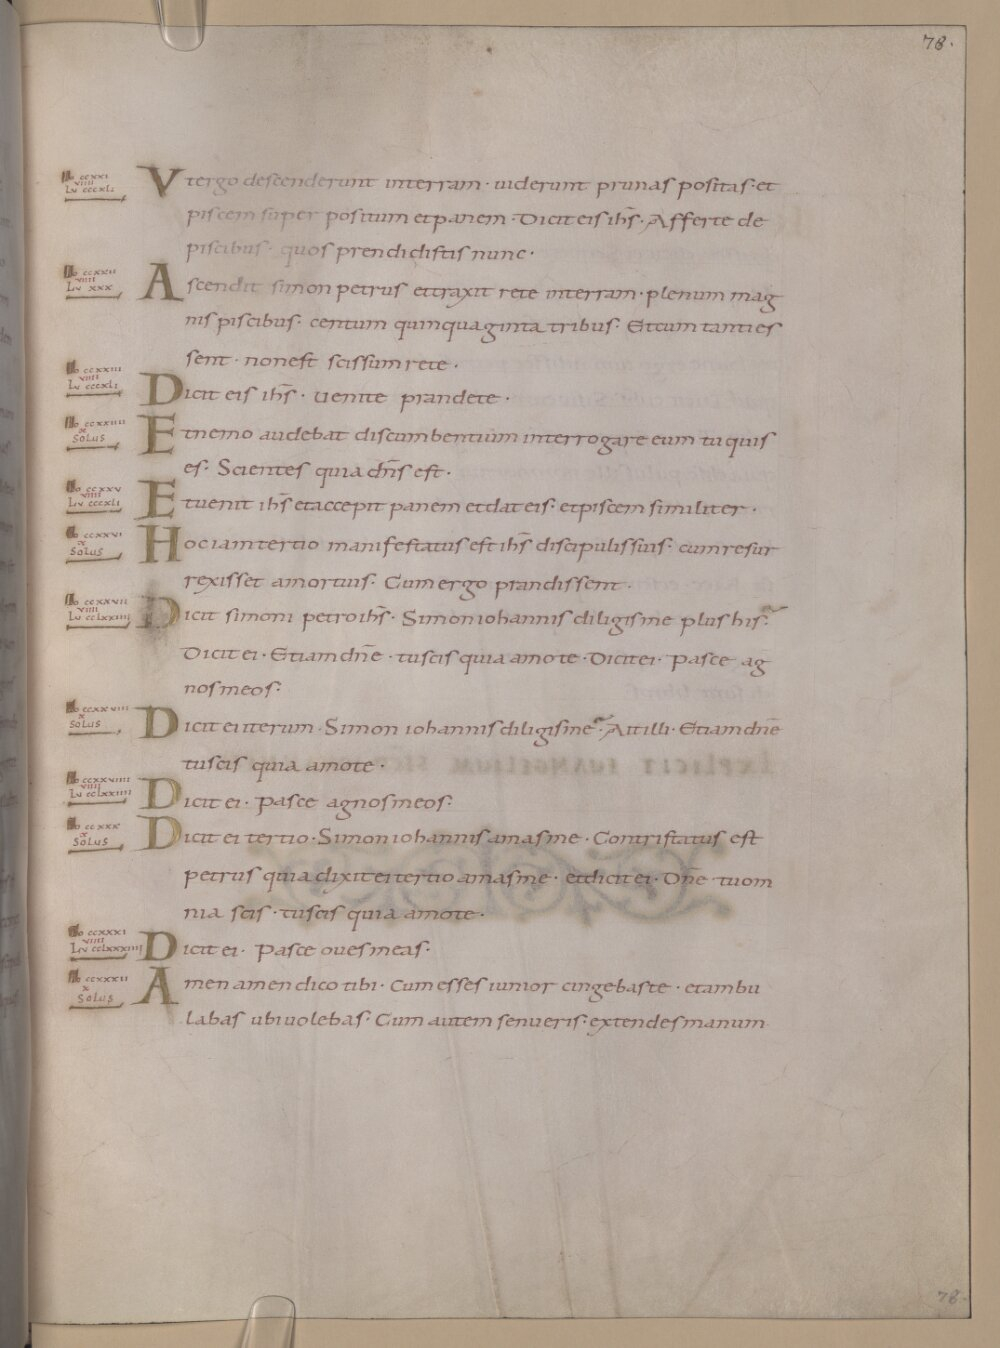 78.
Io ccxxi
viiii
Lu cccxli
Vtergo descenderunt interram · uiderunt prunas positas· et
piscem super positum etpanem · Dicit eis ihs̄ · Afferte de
piscibus · quos prendidistis nunc ·
Io ccxxii
viiii
Lu xxx
Ascendit simon petrus ettraxit rete interram · plenum mag
nis piscibus · centum quinquaginta tribus · Etcum tanti es
sent · nonest scissum rete ·
Io ccxxiii
viiii
Lu cccxli
Dicit eis ihs̄ · uenite prandete ·
Io ccxxiiii
x
Solus
Etnemo audebat discumbentium interrogare eum tu quis
es · Scientes quia dn̄s est ·
Io ccxxv
viiii
Lu cccxli
Etuenit ihs̄ etaccepit panem etdat eis · etpiscem similiter ·
Io ccxxvi
x
Solus
Hociamtertio manifestatus est ihs̄ discipulis suis · cum resur
rexisset amortuis · Cum ergo prandissent ·
Io ccxxvii
viiii
Lu cclxxiiii
Dicit simoni petro ihs̄ · Simon iohannis diligisme plus his ·
Dicit ei · Etiam dn̄e · tuscis quia amote · Dicit ei · Pasce ag
nos meos ·
Io ccxxviii
x
Solus
Dicit ei iterum · Simon iohannis diligisme · Ait illi · Etiam dn̄e
tuscis quia amote ·
Io ccxxviiii
viiii
Lu cclxxiiii
Dicit ei · Pasce agnos meos ·
Io ccxxx
x
Solus
Dicit ei tertio · Simon iohannis amasme · Contristatus est
petrus quia dixit ei tertio amasme · etdicit ei · Dn̄e tu om
nia scis · tuscis quia amote ·
Io ccxxxi
viiii
Lu cclxxxiiii
Dicit ei · Pasce oues meas ·
Io ccxxxii
x
Solus
Amen amen dico tibi · Cum esses iunior cingebas te · etambu
labas ubi uolebas · Cum autem senueris · extendes manum
78.